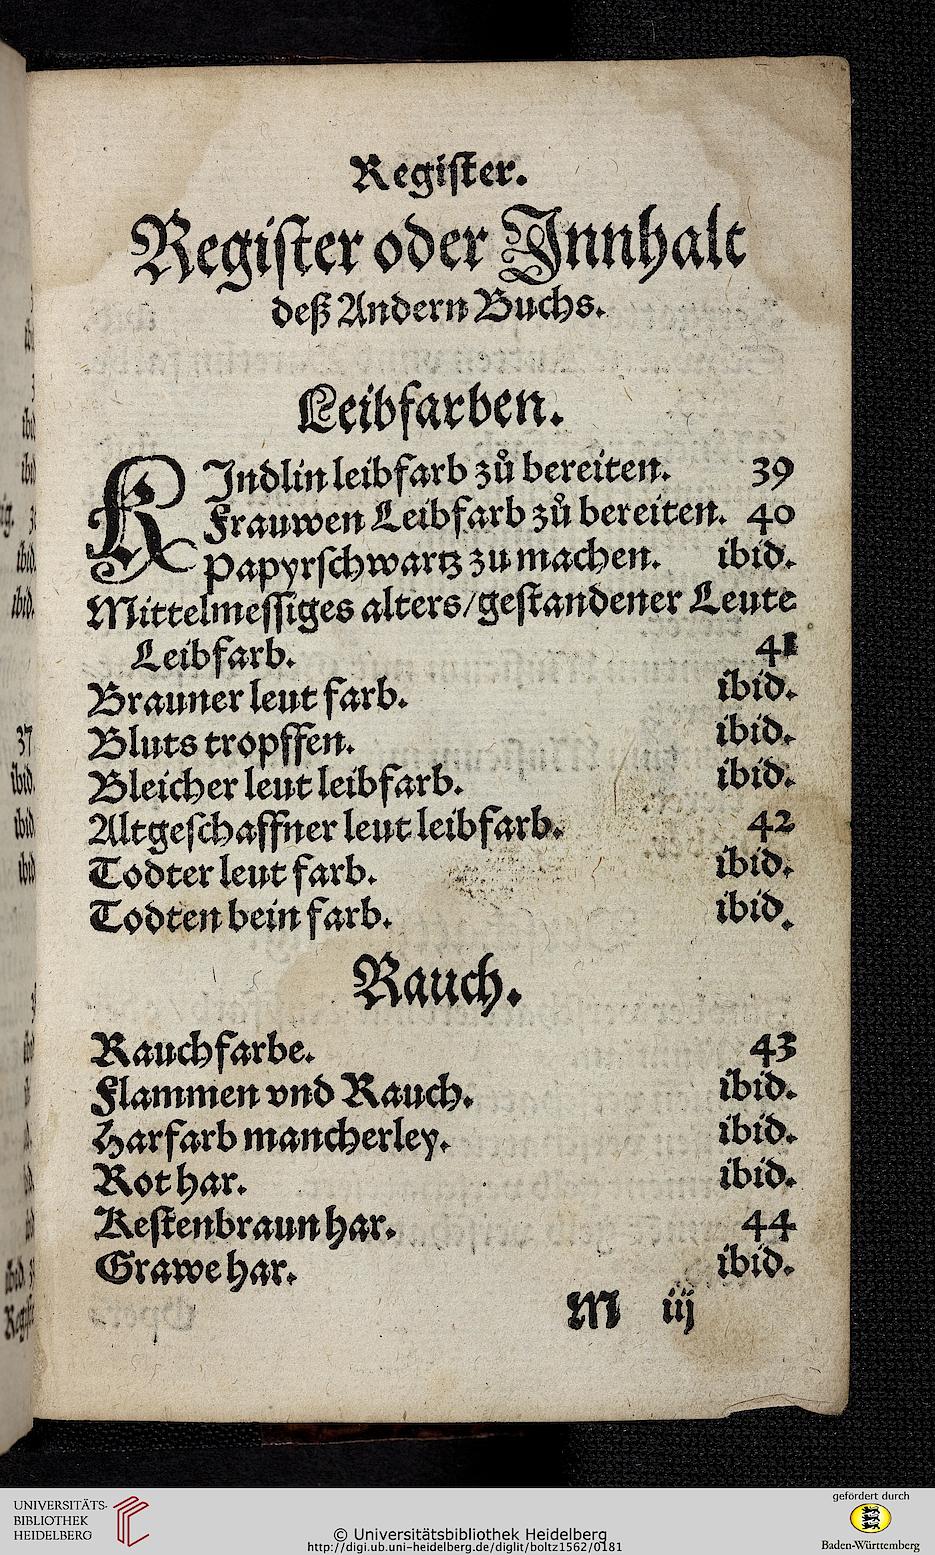 Register.
Register oder Innhalt
deß Andern Buchs.
Leibfarben.
KIndlin leibfarb zů bereiten. 39
Frauwen Leibfarb zů bereiten. 40
Papyrschwartz zu machen. ibid.
Mittelmessiges alters/gestandener Leute
Leibfarb. 41
Brauner leut farb. ibid.
Bluts tropffen. ibid.
Bleicher leut leibfarb. ibid.
Altgeschaffner leut leibfarb. 42
Todter leut farb. ibid.
Todten bein farb. ibid.
Rauch.
Rauchfarbe. 43
Flammen vnd Rauch. ibid.
Harfarb mancherley. ibid.
Rot har. ibid.
Kestenbraun har. 44
Grawe har. ibid.
M iij
37
ibid.
ibid.
UNIVERSITÄTS-
BIBLIOTHEK
HEIDELBERG
© Universitätsbibliothek Heidelberg
http://digi.ub.uni-heidelberg.de/diglit/boltz1562/0181
gefördert durch
Baden-Württemberg